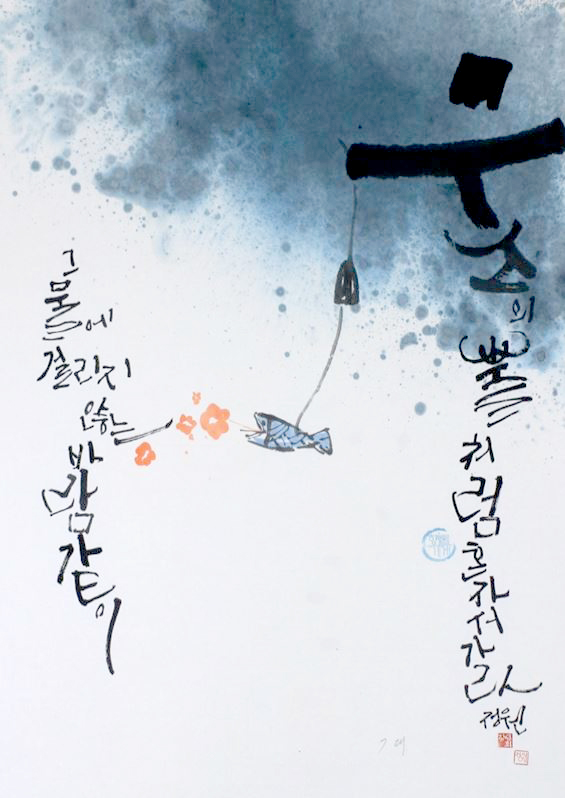 그물에
걸리지
않는
바람같이
무소의
뿔처럼 혼자서 가라